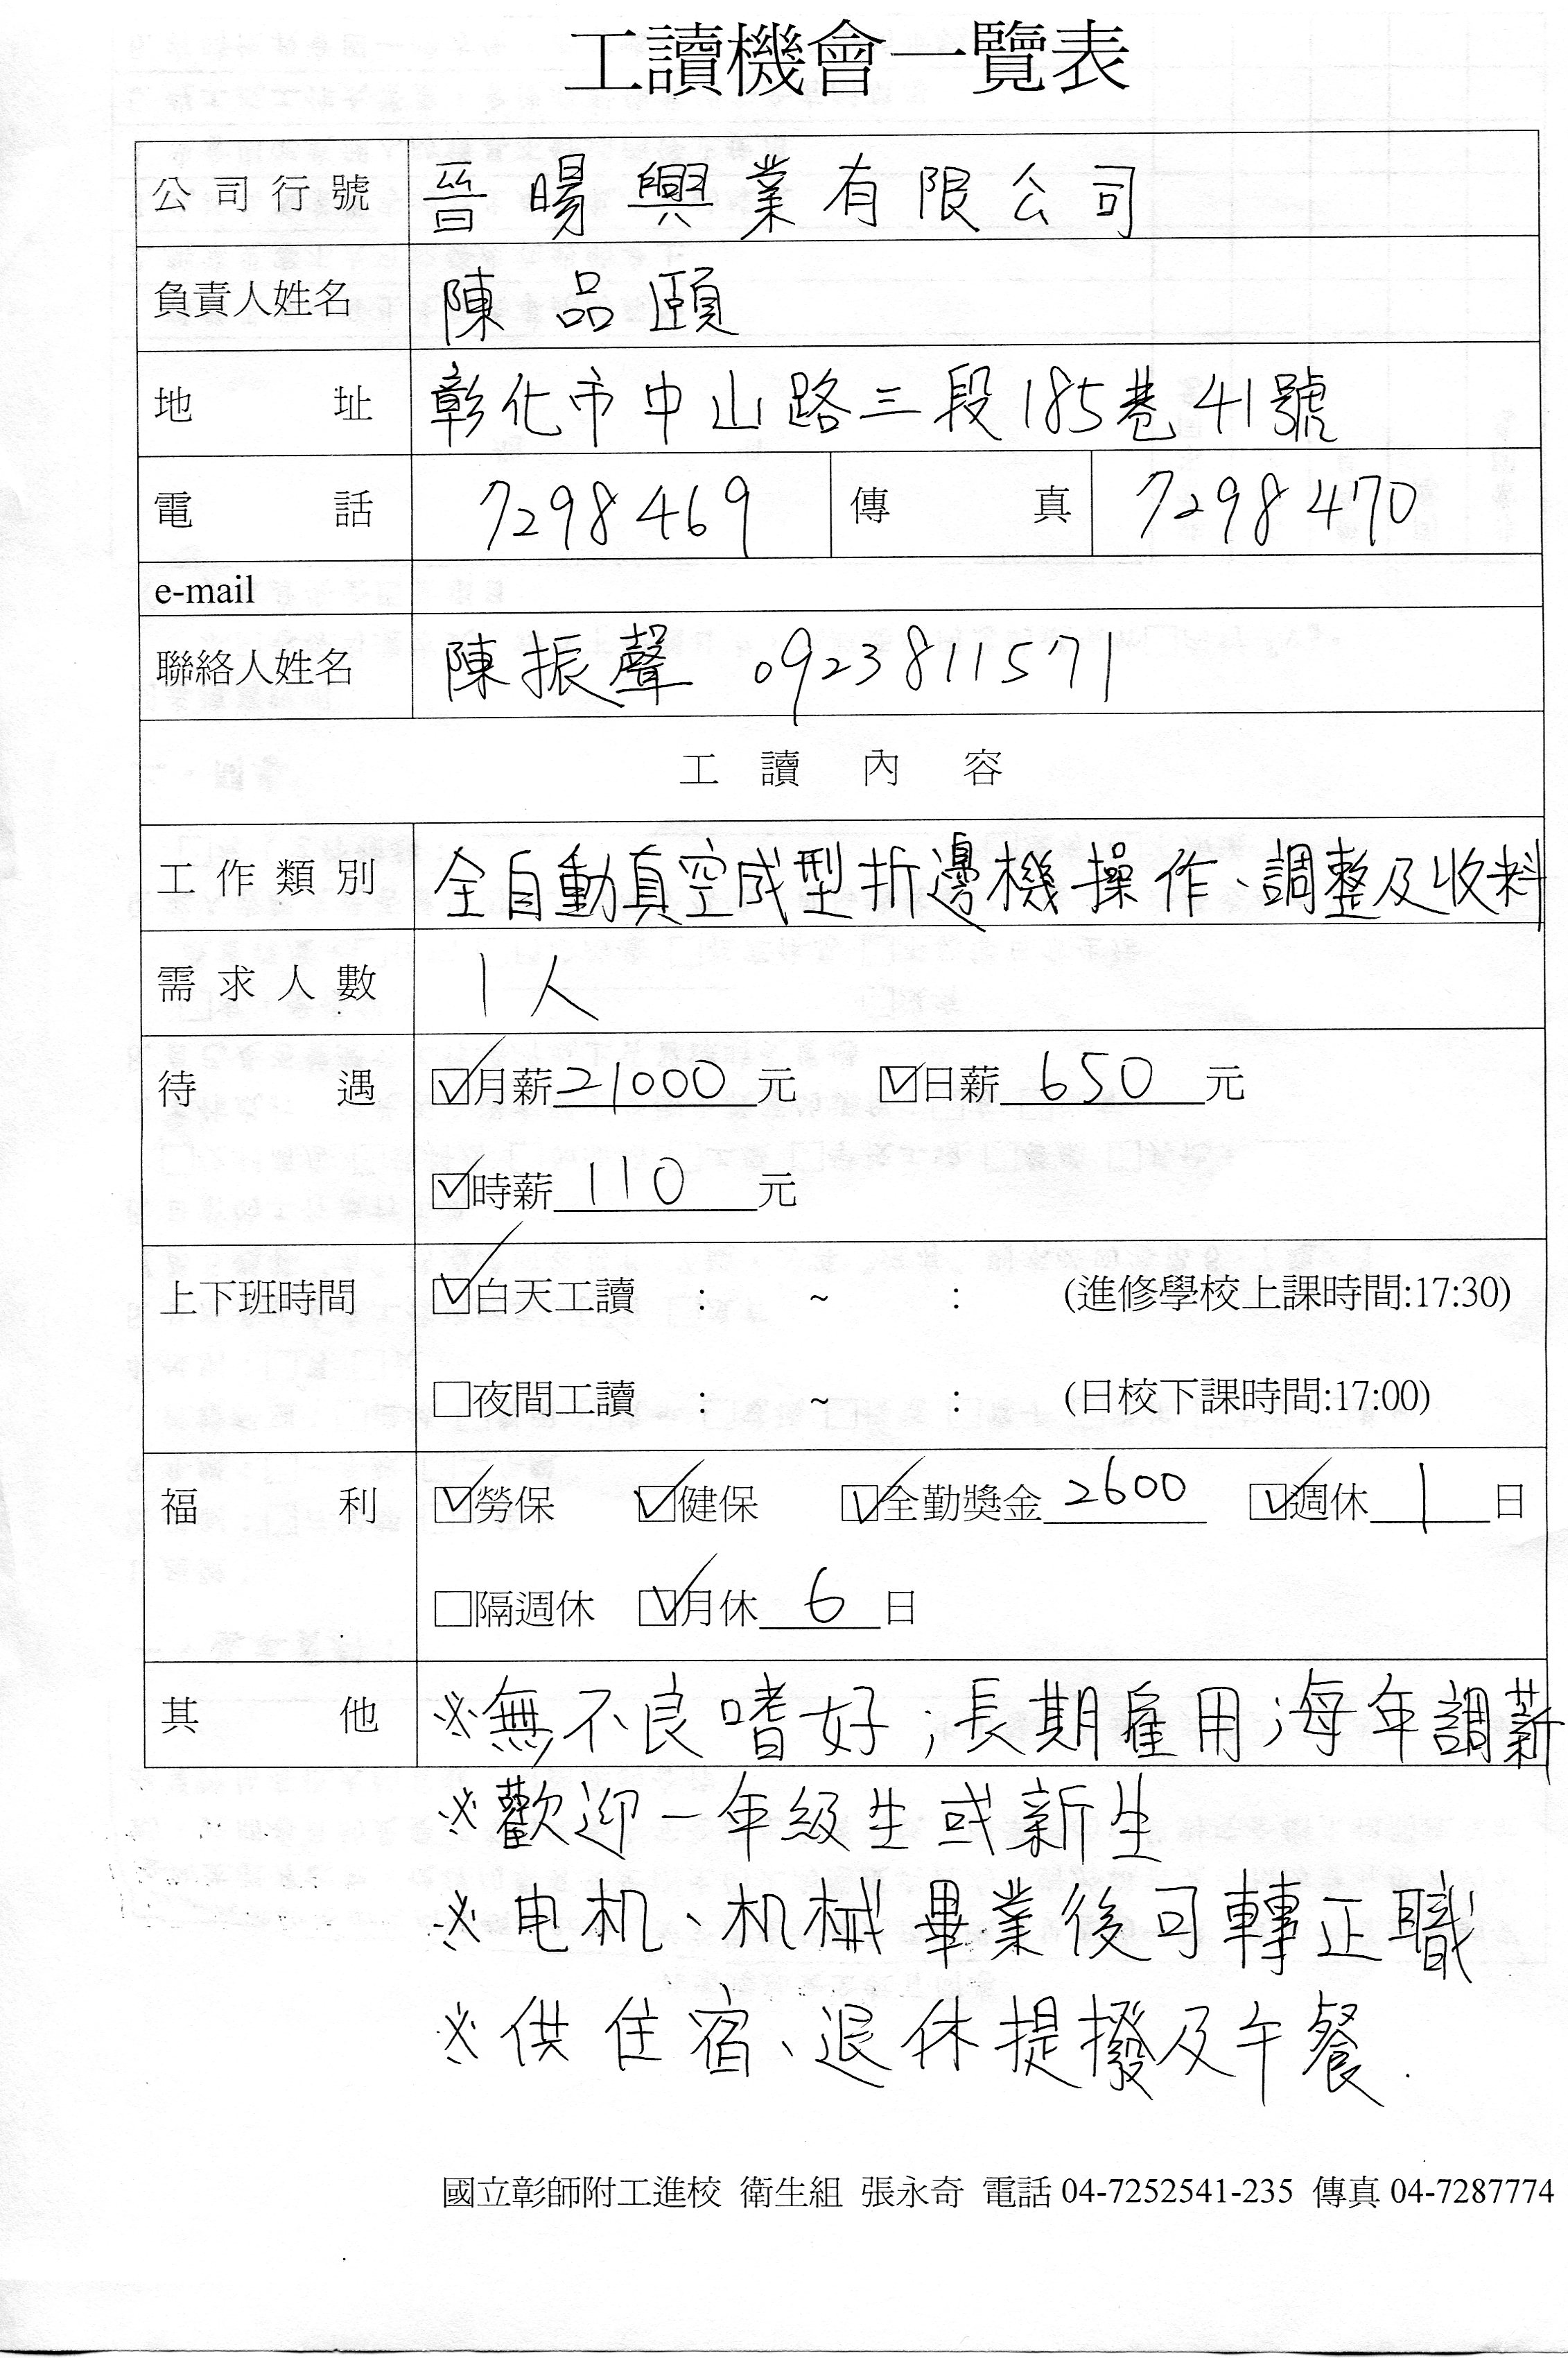 工讀機會一覽表
公司行號 晉暘興業有限公司
負責人姓名 陳品頤
地址 彰化市中山路三段185巷41號
電話 7298469 傳真 7298470
e-mail
聯絡人姓名 陳振聲 0923811571
工讀內容
工作類別 全自動真空成型折邊機操作、調整及收料
需求人數 1人
待遇 ☑月薪21000元 ☑日薪650元
☑時薪110元
上下班時間 ☑白天工讀 : ~ : (進修學校上課時間:17:30)
☐夜間工讀 : ~ : (日校下課時間:17:00)
福利 ☑勞保 ☑健保 ☑全勤獎金2600 ☑週休1日
☐隔週休 ☑月休6日
其他 ※無不良嗜好;長期雇用;每年調薪
※歡迎一年級生或新生
※电机、机械畢業後可轉正職
※供住宿、退休提撥及午餐.
國立彰師附工進校 衛生組 張永奇 電話04-7252541-235 傳真04-7287774